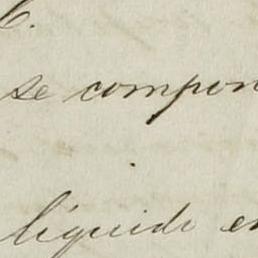 se compon
líquido en